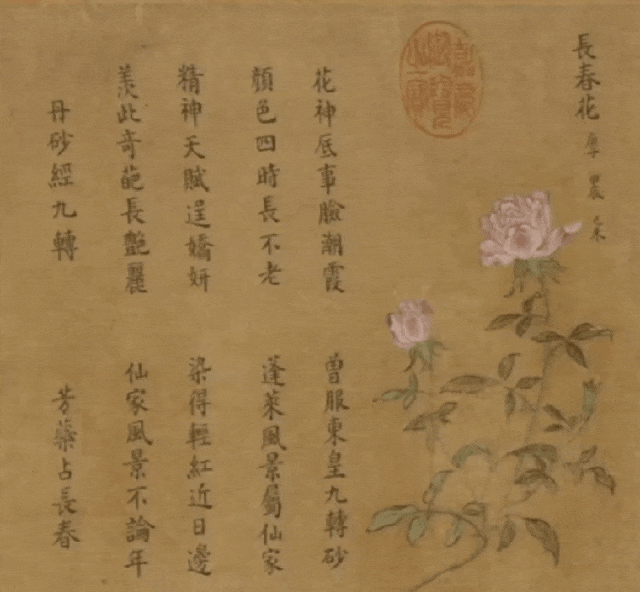 長春花
花神底事臉潮霞 曾服東皇九轉砂
顏色四時長不老 蓬萊風景屬仙家
精神天賦逞嬌妍 染得輕紅近日邊
羨此奇葩長艷麗 仙家風景不論年
丹砂經九轉 芳蘂占長春